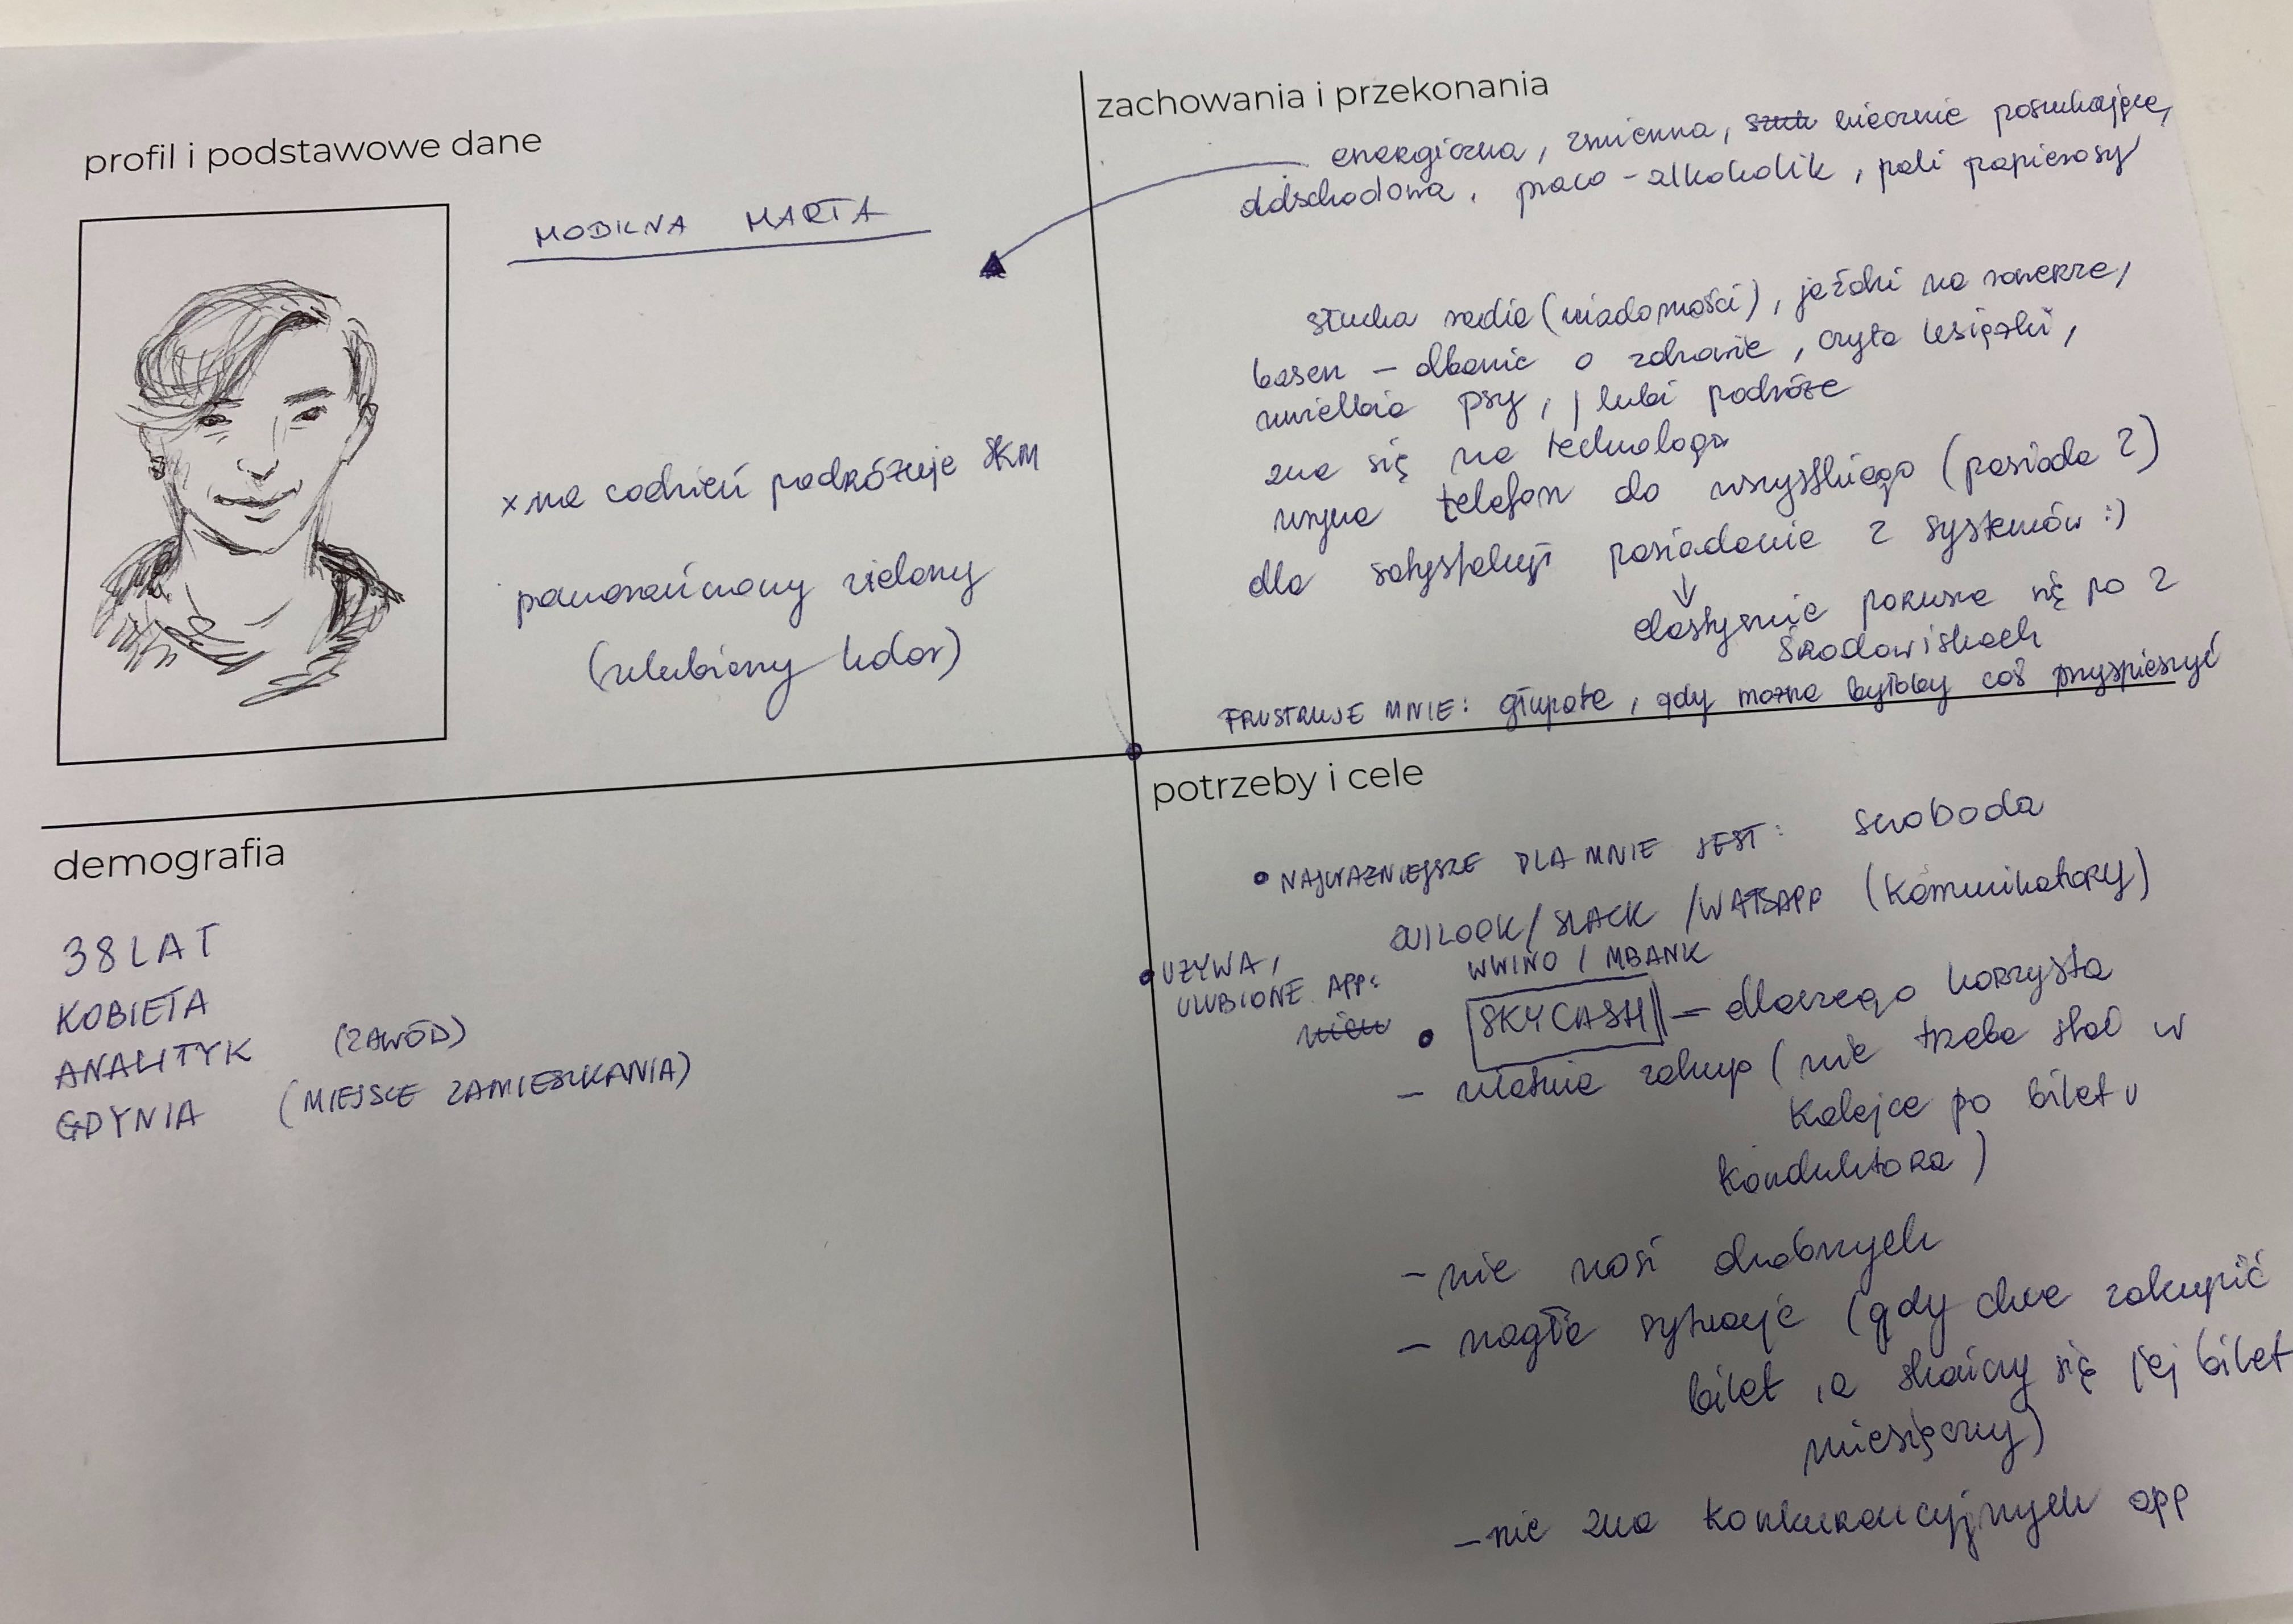 profil i podstawowe dane
MOBILNA MARTA
x na codzień podróżuje SKM
pomarańczowy zielony
(ulubiony kolor)
zachowania i przekonania
energiczna, zmienna, wiecznie poszukająca,
praco-alkoholik, pali papierosy
słucha radia (wiadomości), jeździ na rowerze,
basen - dbanie o zdrowie, czyta książki,
uwielbia psy, lubi podróże
zna się na technologii
używa telefon do wszystkiego (posiada 2)
dla satysfakcji posiadanie 2 systemów :)
↓
porusza się po 2
środowiskach
FRUSTRUJE MNIE: głupota, gdy można byłoby coś przyspieszyć
demografia
38 LAT
KOBIETA
ANALITYK (ZAWÓD)
GDYNIA (MIEJSCE ZAMIESZKANIA)
potrzeby i cele
• NAJWAŻNIEJSZE DLA MNIE JEST: swoboda
OUTLOOK / SLACK / WATSAPP (komunikatory)
• UŻYWA, WWINO / MBANK
ULUBIONE APP:
• SKYCASH - dlaczego korzysta
- zakup (nie trzeba stać w
kolejce po bilet u
konduktora)
- nie nosi drobnych
- nagłe sytuacje (gdy chce zakupić
bilet, a skończy się jej bilet
miesięczny)
- nie zna konkurencyjnych app